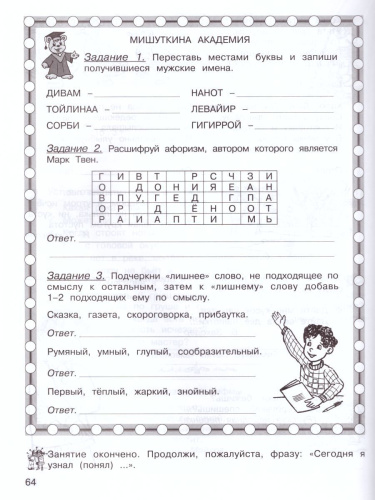 МИШУТКИНА АКАДЕМИЯ
Задание 1. Переставь местами буквы и запиши
получившиеся мужские имена.
ДИВАМ – НАНОТ –
ТОЙЛИНАА – ЛЕВАЙИР –
СОРБИ – ГИГИРРОЙ –
Задание 2. Расшифруй афоризм, автором которого является
Марк Твен.
Г И В Т Р С Ч З И
О Д О Н И Я Е А Н
В П У, Г Е Д Г П А
О Р Д Ё Н О О Т
Р А И А П Т И М Ь
Ответ.
Задание 3. Подчеркни «лишнее» слово, не подходящее по
смыслу к остальным, затем к «лишнему» слову добавь
1–2 подходящих ему по смыслу.
Сказка, газета, скороговорка, прибаутка.
Ответ.
Румяный, умный, глупый, сообразительный.
Ответ.
Первый, тёплый, жаркий, знойный.
Ответ.
Занятие окончено. Продолжи, пожалуйста, фразу: «Сегодня я
узнал (понял) ...».
64